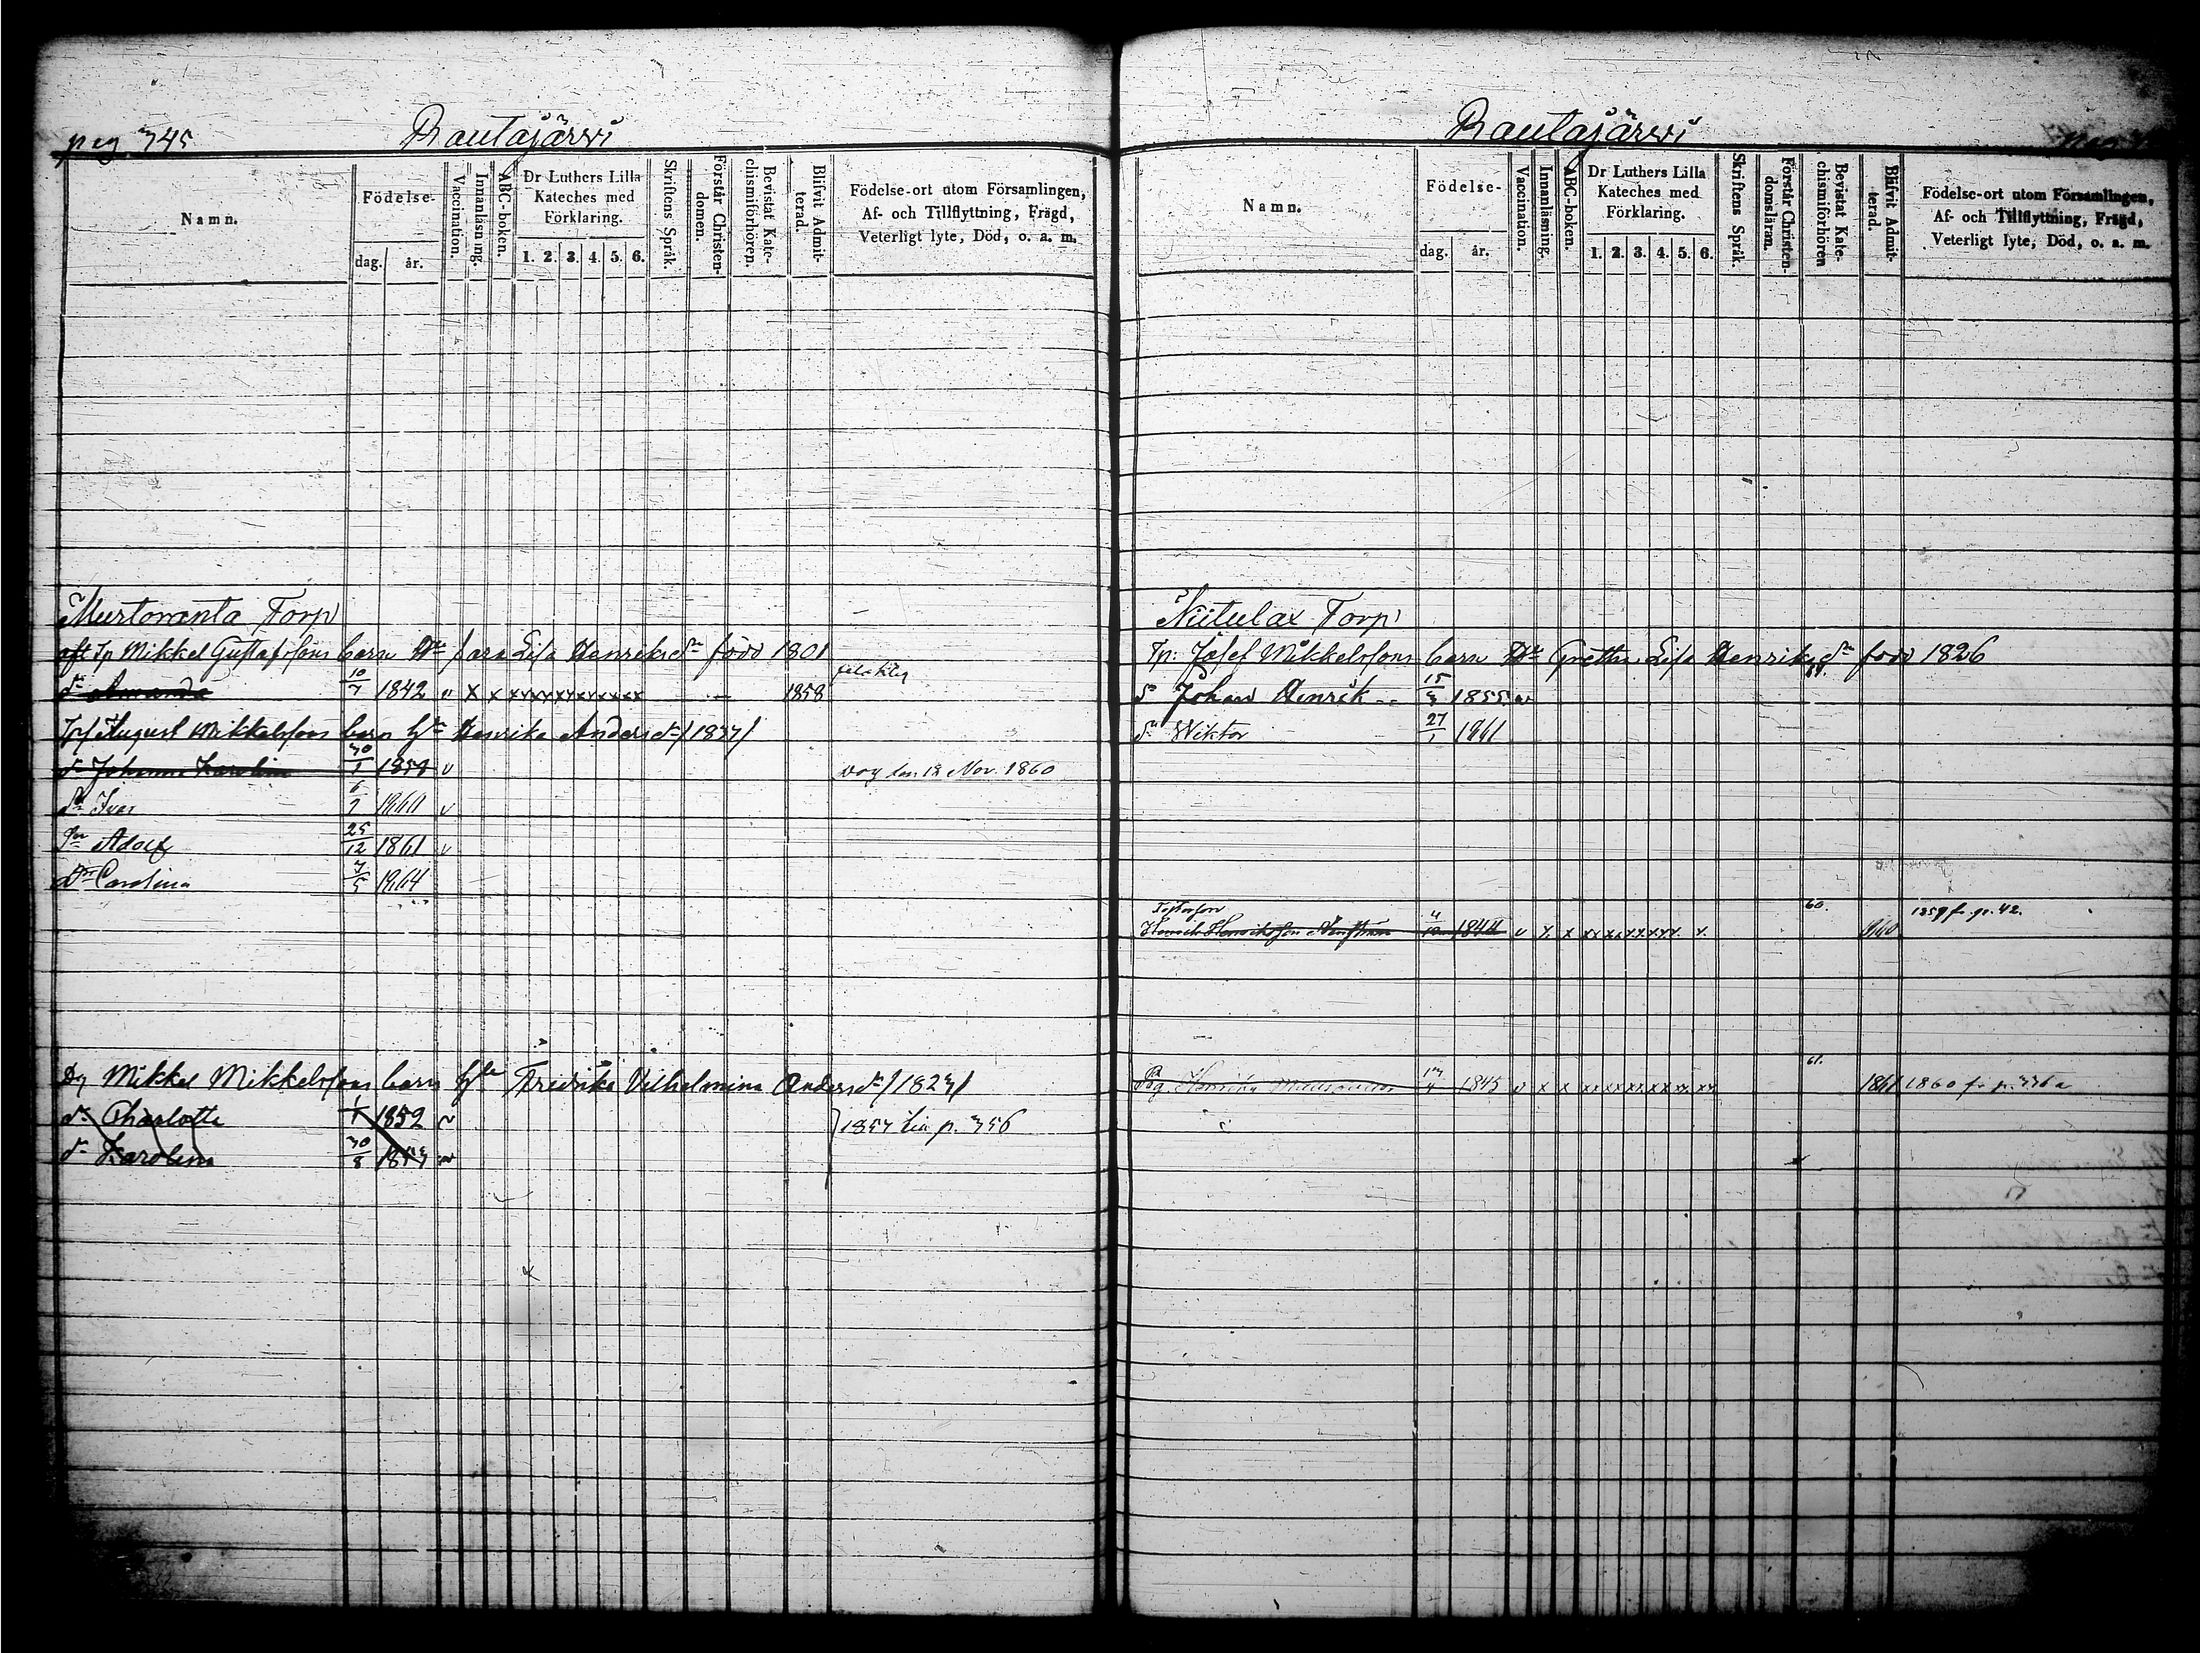 pag. 345
Rautajärwi
Namn.
Födelse-
dag.
år.
Vaccination.
Innanläsning.
ABC-boken.
Dr Luthers Lilla
Kateches med
Förklaring.
1. 2. 3. 4. 5. 6.
Skriftens Språk.
Förstår Christen-
domen.
Bevistat Kate-
chismiförhören.
Blifvit Admit-
terad.
Födelse-ort utom Församlingen,
Af- och Tillflyttning, Frägd,
Veterligt lyte, Död, o. a. m.
Murtoranta Torp
aft Tp Mikkel Gustafssons barn Hu Sara Lisa Henriksdr född 1801
dr Amanda 10/7 1842 v x x x x x x x x x x x x 1858
Tpf August Mikkelssons barn hu Henrika Andersdr /1837/
dr Johanna Karolina 30/1 1859 v dog den 12 Nov. 1860
Sn Ivar 6/7 1860 v
Sn Adolf 25/12 1861 v
Dr Carolina 3/5 1864
Dg Mikkel Mikkelssons barn hu Fredrika Vilhelmina Andersdr /1823/
dr Charlotta 1/1 1852 v
1857 till p. 356
dr Karolina 30/8 1853 v
Rautajärwi
Namn.
Födelse-
dag.
år.
Vaccination.
Innanläsning.
ABC-boken.
Dr Luthers Lilla
Kateches med
Förklaring.
1. 2. 3. 4. 5. 6.
Skriftens Språk.
Förstår Christen-
domsläran.
Bevistat Kate-
chismiförhören
Blifvit Admit-
terad.
Födelse-ort utom Församlingen,
Af- och Tillflyttning, Frägd,
Veterligt lyte, Död, o. a. m.
Niitulax Torp
Tp: Josef Mikkelssons barn Hu Gretha Lisa Henriksdr född 1826
S Johan Henrik 15/3 1855 v
Sn Wiktor 27/1 1861
60. 1859 fr. p. 42.
Henrik Henriksson 4/12 1844 v x x x x x x x x x x 1860
61.
Pg. Henrika 1845 v x x x x x x x x x x x 1861 1860 fr p. 336 a